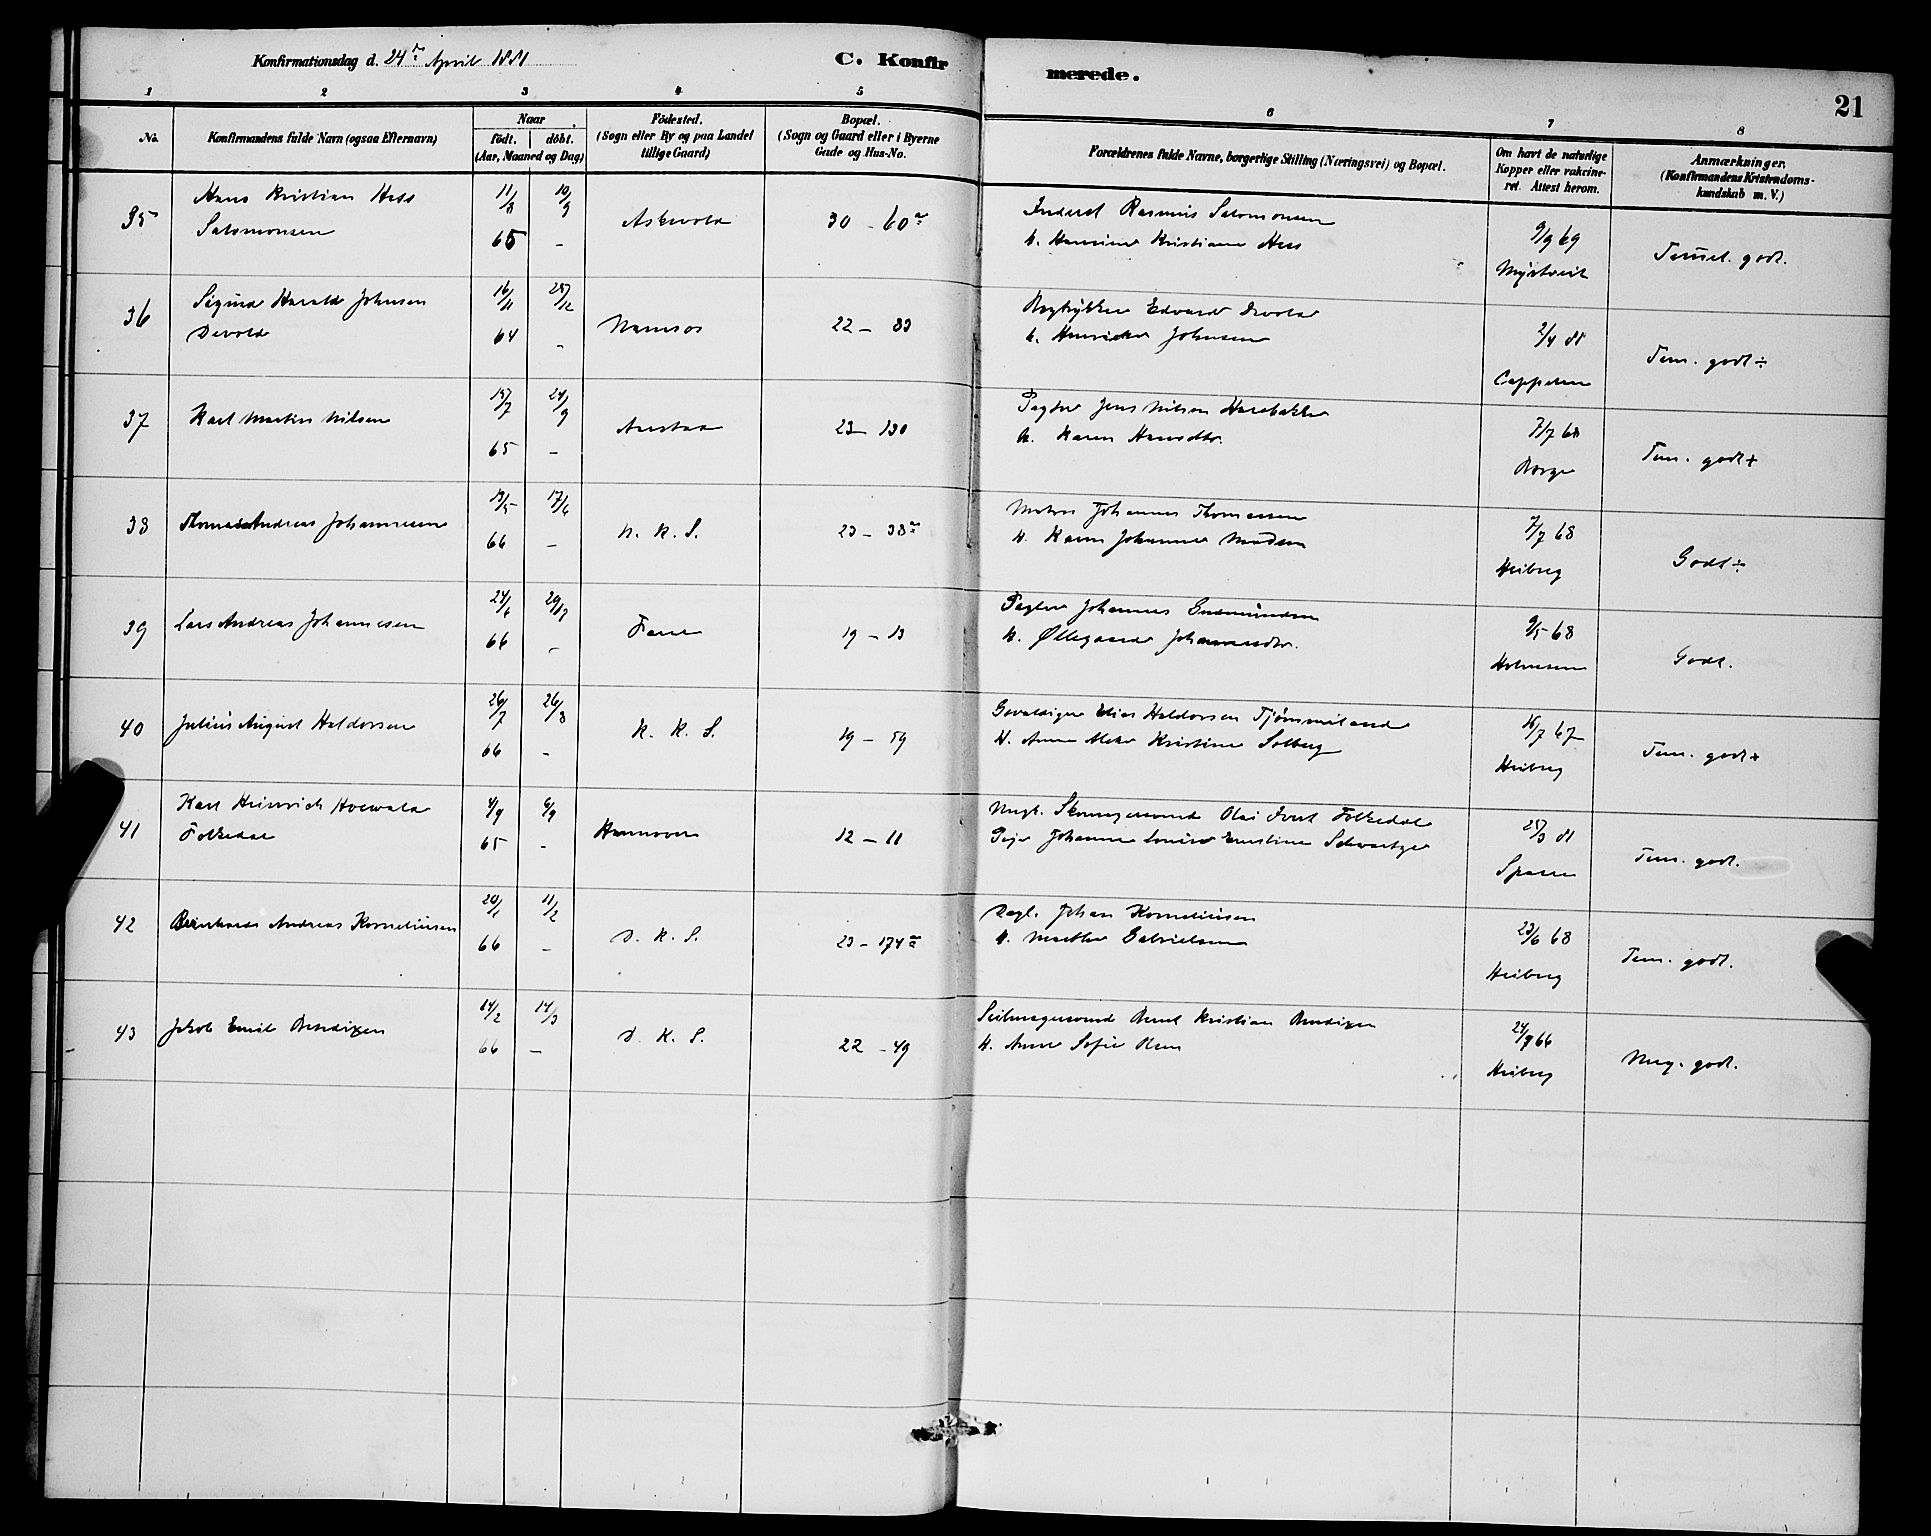 Konfirmationsdag d. 24de April 1881
C. Konfirmerede.
21
1 2 3 4 5 6 7 8
No.
Konfirmandens fulde Navn (ogsaa Efternavn)
Naar
födt. döbt.
(Aar, Maaned og Dag)
Födested.
(Sogn eller By og paa Landet
tillige Gaard)
Bopæl.
(Sogn og Gaard eller i Byerne
Gade og Hus-No.
Forældrenes fulde Navne, borgerlige Stilling (Næringsvei) og Bopæl.
Om havt de naturlige
Kopper eller vakcine-
ret. Attest herom.
Anmærkninger.
(Konfirmandens Kristendoms-
kundskab m. V.)
35 Hans Kristian Hess 11/8 10/9 Askevold 30 - 60a Rasmus Salomonsen 9/9 69 Temmel. godt.
Salomonsen 65 - H. Kristiane Hess Myrtveit
36 Sigurd Harald Johnsen 16/11 25/12 Namsos 22 - 83 Bogtrykker Edvard Devold 2/4 81 Tem. godt ÷
Devold 64 - H. Johnsen Cappelen
37 Karl Martin Nilsen 15/7 24/9 23 - 130 Jens Nilsen 7/7 68 Tem. godt +
65 - H. Karen Hansdtr. Borge
38 Thomas Andreas Johannesen 19/5 17/6 N. K. S. 23 - 38a Matros Johannes Thomassen 7/7 68 Godt ÷
66 - H. Karen Johanne Madsen Heiberg
39 Lars Andreas Johannesen 24/6 29/7 Fane 19 - 13 Johannes Gudmundsen 9/5 68 Godt.
66 - H. Øllegaard Johannesdtr. Holmsen
40 Julius August Haldorsen 26/7 26/8 K. K. S. 19 - 59 Elias Haldorsen 16/7 67 Tem. godt +
66 - H. Anne Kristine Solberg Heiberg
41 Karl Heinrich 4/9 6/9 Hannover 12 - 11 Ungk. Skomagersvend Olai Folkedal 25/3 81 Tem. godt.
Folkedal 65 - Pige Johanne Louise Ernstine Schwartzer
42 Bernhard Andreas Korneliussen 20/1 11/2 D. K. S. 23 - 174a Dagl. Johan Korneliussen 23/6 68 Tem. godt.
66 - H. Marthe Gabrielsen Heiberg
43 Jakob Emil Bendixen 14/2 14/3 D. K. S. 22 - 49 Seilmagersvend Bernt Kristian Bendixen 24/9 66 Meg. godt.
66 - H. Anne Sofie Olsen Heiberg